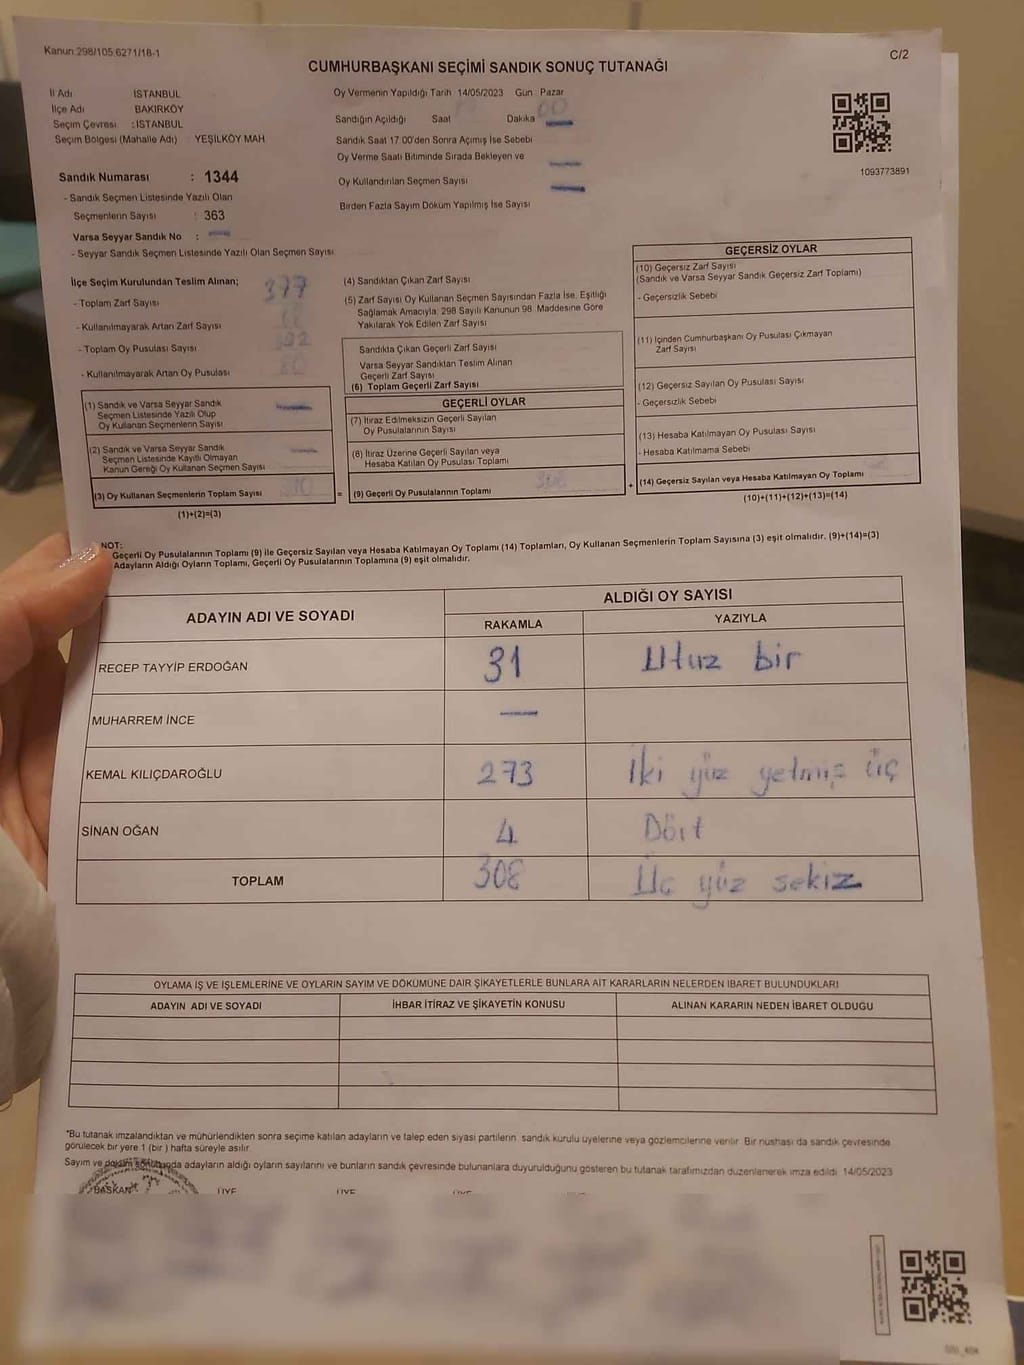 Kanun 298/105.6271/18-1
C/2
CUMHURBAŞKANI SEÇİMİ SANDIK SONUÇ TUTANAĞI
İl Adı İSTANBUL
İlçe Adı BAKIRKÖY
Seçim Çevresi : İSTANBUL
Seçim Bölgesi (Mahalle Adı) YEŞİLKÖY MAH
Sandık Numarası : 1344
- Sandık Seçmen Listesinde Yazılı Olan
Seçmenlerin Sayısı : 363
Varsa Seyyar Sandık No :
- Seyyar Sandık Seçmen Listesinde Yazılı Olan Seçmen Sayısı
Oy Vermenin Yapıldığı Tarih 14/05/2023 Gün Pazar
Sandığın Açıldığı Saat Dakika 00
Sandık Saat 17.00'den Sonra Açımış İse Sebebi
Oy Verme Saati Bitiminde Sırada Bekleyen ve
Oy Kullandırılan Seçmen Sayısı
Birden Fazla Sayım Döküm Yapılmış İse Sayısı
1093773891
İlçe Seçim Kurulundan Teslim Alınan;
- Toplam Zarf Sayısı 377
- Kullanılmayarak Artan Zarf Sayısı
- Toplam Oy Pusulası Sayısı
- Kullanılmayarak Artan Oy Pusulası
(1) Sandık ve Varsa Seyyar Sandık
Seçmen Listesinde Yazılı Olup
Oy Kullanan Seçmenlerin Sayısı
(2) Sandık ve Varsa Seyyar Sandık
Seçmen Listesinde Kayıtlı Olmayan
Kanun Gereği Oy Kullanan Seçmen Sayısı
(3) Oy Kullanan Seçmenlerin Toplam Sayısı 310
(1)+(2)=(3)
(4) Sandıktan Çıkan Zarf Sayısı
(5) Zarf Sayısı Oy Kullanan Seçmen Sayısından Fazla İse, Eşitliği
Sağlamak Amacıyla; 298 Sayılı Kanunun 98. Maddesine Göre
Yakılarak Yok Edilen Zarf Sayısı
Sandıkta Çıkan Geçerli Zarf Sayısı
Varsa Seyyar Sandıktan Teslim Alınan
Geçerli Zarf Sayısı
(6) Toplam Geçerli Zarf Sayısı
GEÇERLİ OYLAR
(7) İtiraz Edilmeksizin Geçerli Sayılan
Oy Pusulalarının Sayısı
(8) İtiraz Üzerine Geçerli Sayılan veya
Hesaba Katılan Oy Pusulası Toplamı
= (9) Geçerli Oy Pusulalarının Toplamı 308
GEÇERSİZ OYLAR
(10) Geçersiz Zarf Sayısı
(Sandık ve Varsa Seyyar Sandık Geçersiz Zarf Toplamı)
- Geçersizlik Sebebi
(11) İçinden Cumhurbaşkanı Oy Pusulası Çıkmayan
Zarf Sayısı
(12) Geçersiz Sayılan Oy Pusulası Sayısı
- Geçersizlik Sebebi
(13) Hesaba Katılmayan Oy Pusulası Sayısı
- Hesaba Katılmama Sebebi
+ (14) Geçersiz Sayılan veya Hesaba Katılmayan Oy Toplamı
(10)+(11)+(12)+(13)=(14)
NOT:
Geçerli Oy Pusulalarının Toplamı (9) ile Geçersiz Sayılan veya Hesaba Katılmayan Oy Toplamı (14) Toplamları, Oy Kullanan Seçmenlerin Toplam Sayısına (3) eşit olmalıdır. (9)+(14)=(3)
Adayların Aldığı Oyların Toplamı, Geçerli Oy Pusulalarının Toplamına (9) eşit olmalıdır.
ADAYIN ADI VE SOYADI
ALDIĞI OY SAYISI
RAKAMLA YAZIYLA
RECEP TAYYİP ERDOĞAN 31 Otuz bir
MUHARREM İNCE —
KEMAL KILIÇDAROĞLU 273 İki yüz yetmiş üç
SİNAN OĞAN 4 Dört
TOPLAM 308 Üç yüz sekiz
OYLAMA İŞ VE İŞLEMLERİNE VE OYLARIN SAYIM VE DÖKÜMÜNE DAİR ŞİKAYETLERLE BUNLARA AİT KARARLARIN NELERDEN İBARET BULUNDUKLARI
ADAYIN ADI VE SOYADI İHBAR İTİRAZ VE ŞİKAYETİN KONUSU ALINAN KARARIN NEDEN İBARET OLDUĞU
*Bu tutanak imzalandıktan ve mühürlendikten sonra seçime katılan adayların ve talep eden siyasi partilerin sandık kurulu üyelerine veya gözlemcilerine verilir. Bir nüshası da sandık çevresinde
görülecek bir yere 1 (bir) hafta süreyle asılır.
Sayım ve döküm sonucunda adayların aldığı oyların sayılarını ve bunların sandık çevresinde bulunanlara duyurulduğunu gösteren bu tutanak tarafımızdan düzenlenerek imza edildi. 14/05/2023
BAŞKAN ÜYE ÜYE ÜYE